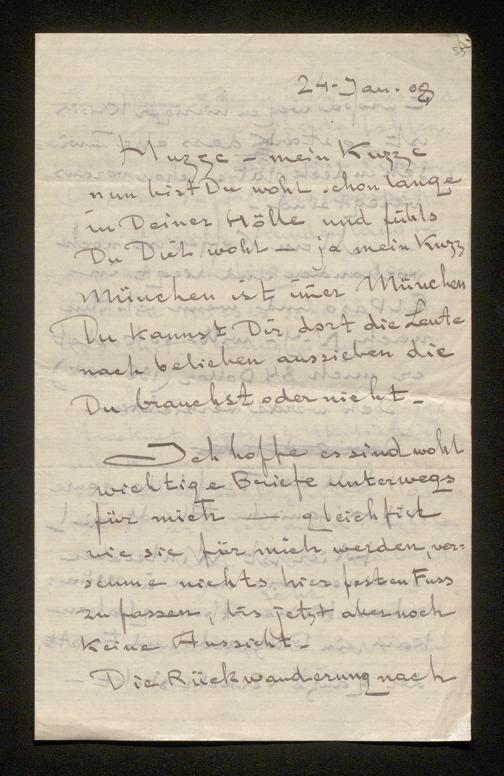 55
24-Jan. 08
Kuzze - mein Kuzze
nun bist Du wohl schon lange
in Deiner Hölle und fühls
Du Dich wohl - ja mein Kuzz
München ist im̄er München
Du kannst Dir dort die Leute
nach belieben aussieben die
Du brauchst oder nicht -
Ich hoffe es sind wohl
wichtige Briefe unterwegs
für mich — gleichfiel
wie sie für mich werden, ver=
seume nichts hier festen Fuss
zu fassen, bis jetzt aber noch
keine Aussicht -
Die Rückwanderung nach